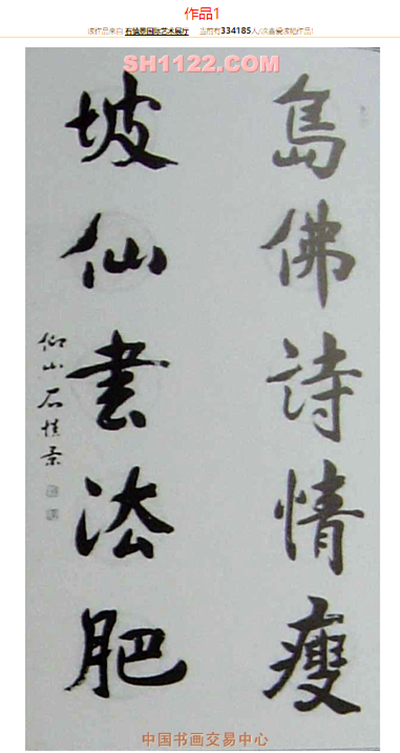 作品1
该作品来自 石慎景国际艺术展厅 当前有334185人/次
SH1122.COM
島佛詩情瘦
坡仙書法肥
仰山石慎景
中国书画交易中心